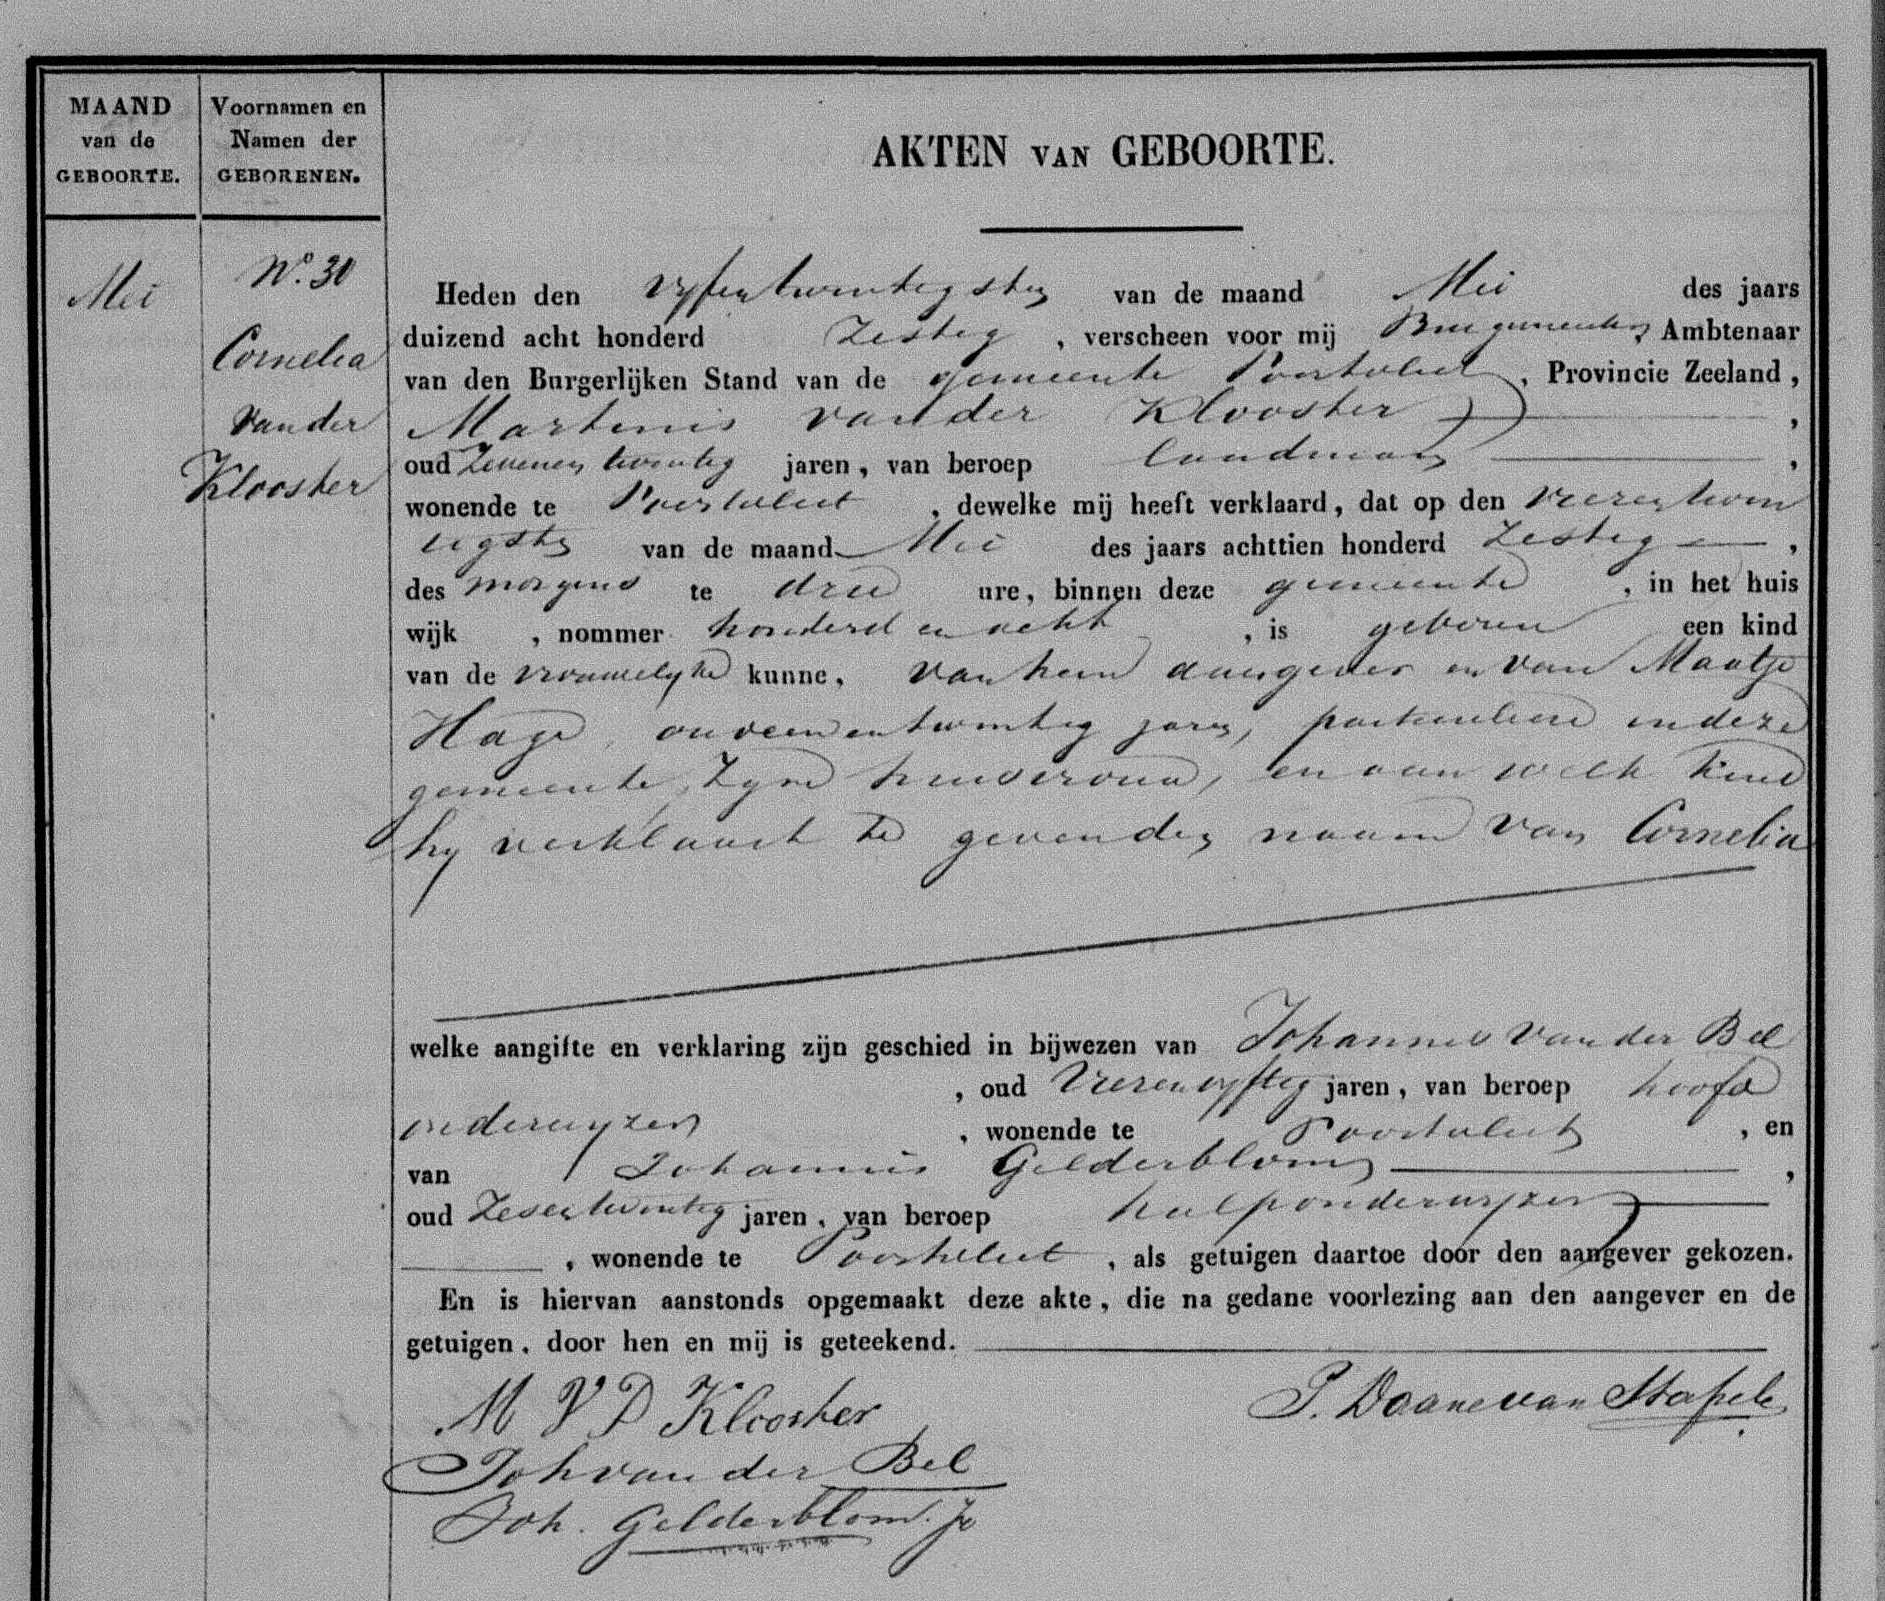 MAAND
van de
GEBOORTE.
Voornamen en
Namen der
GEBORENEN.
AKTEN VAN GEBOORTE.
Mei
No. 30
Cornelia
van der
Klooster
Heden den vyfentwintigsten van de maand Mei des jaars
duizend acht honderd Zestig, verscheen voor mij Burgemeester, Ambtenaar
van den Burgerlijken Stand van de gemeente Poortvliet, Provincie Zeeland,
Martinis van der Klooster,
oud Zevenen twintig jaren, van beroep landman,
wonende te Poortvliet, dewelke mij heeft verklaard, dat op den vierentwin
tigsten van de maand Mei des jaars achttien honderd Zestig,
des morgens te drie ure, binnen deze gemeente, in het huis
wijk , nommer honderd en acht, is geboren een kind
van de vrouwelyke kunne, van hem aangever en van Maatje
Hage, oud eenentwintig jaren, particuliere in deze
gemeente, Zyne huisvrouw, en aan welk kind
hy verklaart te geven den naam van Cornelia
welke aangifte en verklaring zijn geschied in bijwezen van Johannes van der Bel
, oud Vierenvyftig jaren, van beroep hoofd
onderwyzer, wonende te Poortvliet, en
van Johannis Gelderblom,
oud Zesentwintig jaren, van beroep hulponderwyzer
, wonende te Poortvliet, als getuigen daartoe door den aangever gekozen.
En is hiervan aanstonds opgemaakt deze akte, die na gedane voorlezing aan den aangever en de
getuigen, door hen en mij is geteekend.
M V D Klooster
P. Daane van Stapele
Joh van der Bel
Joh. Gelderblom. Jr